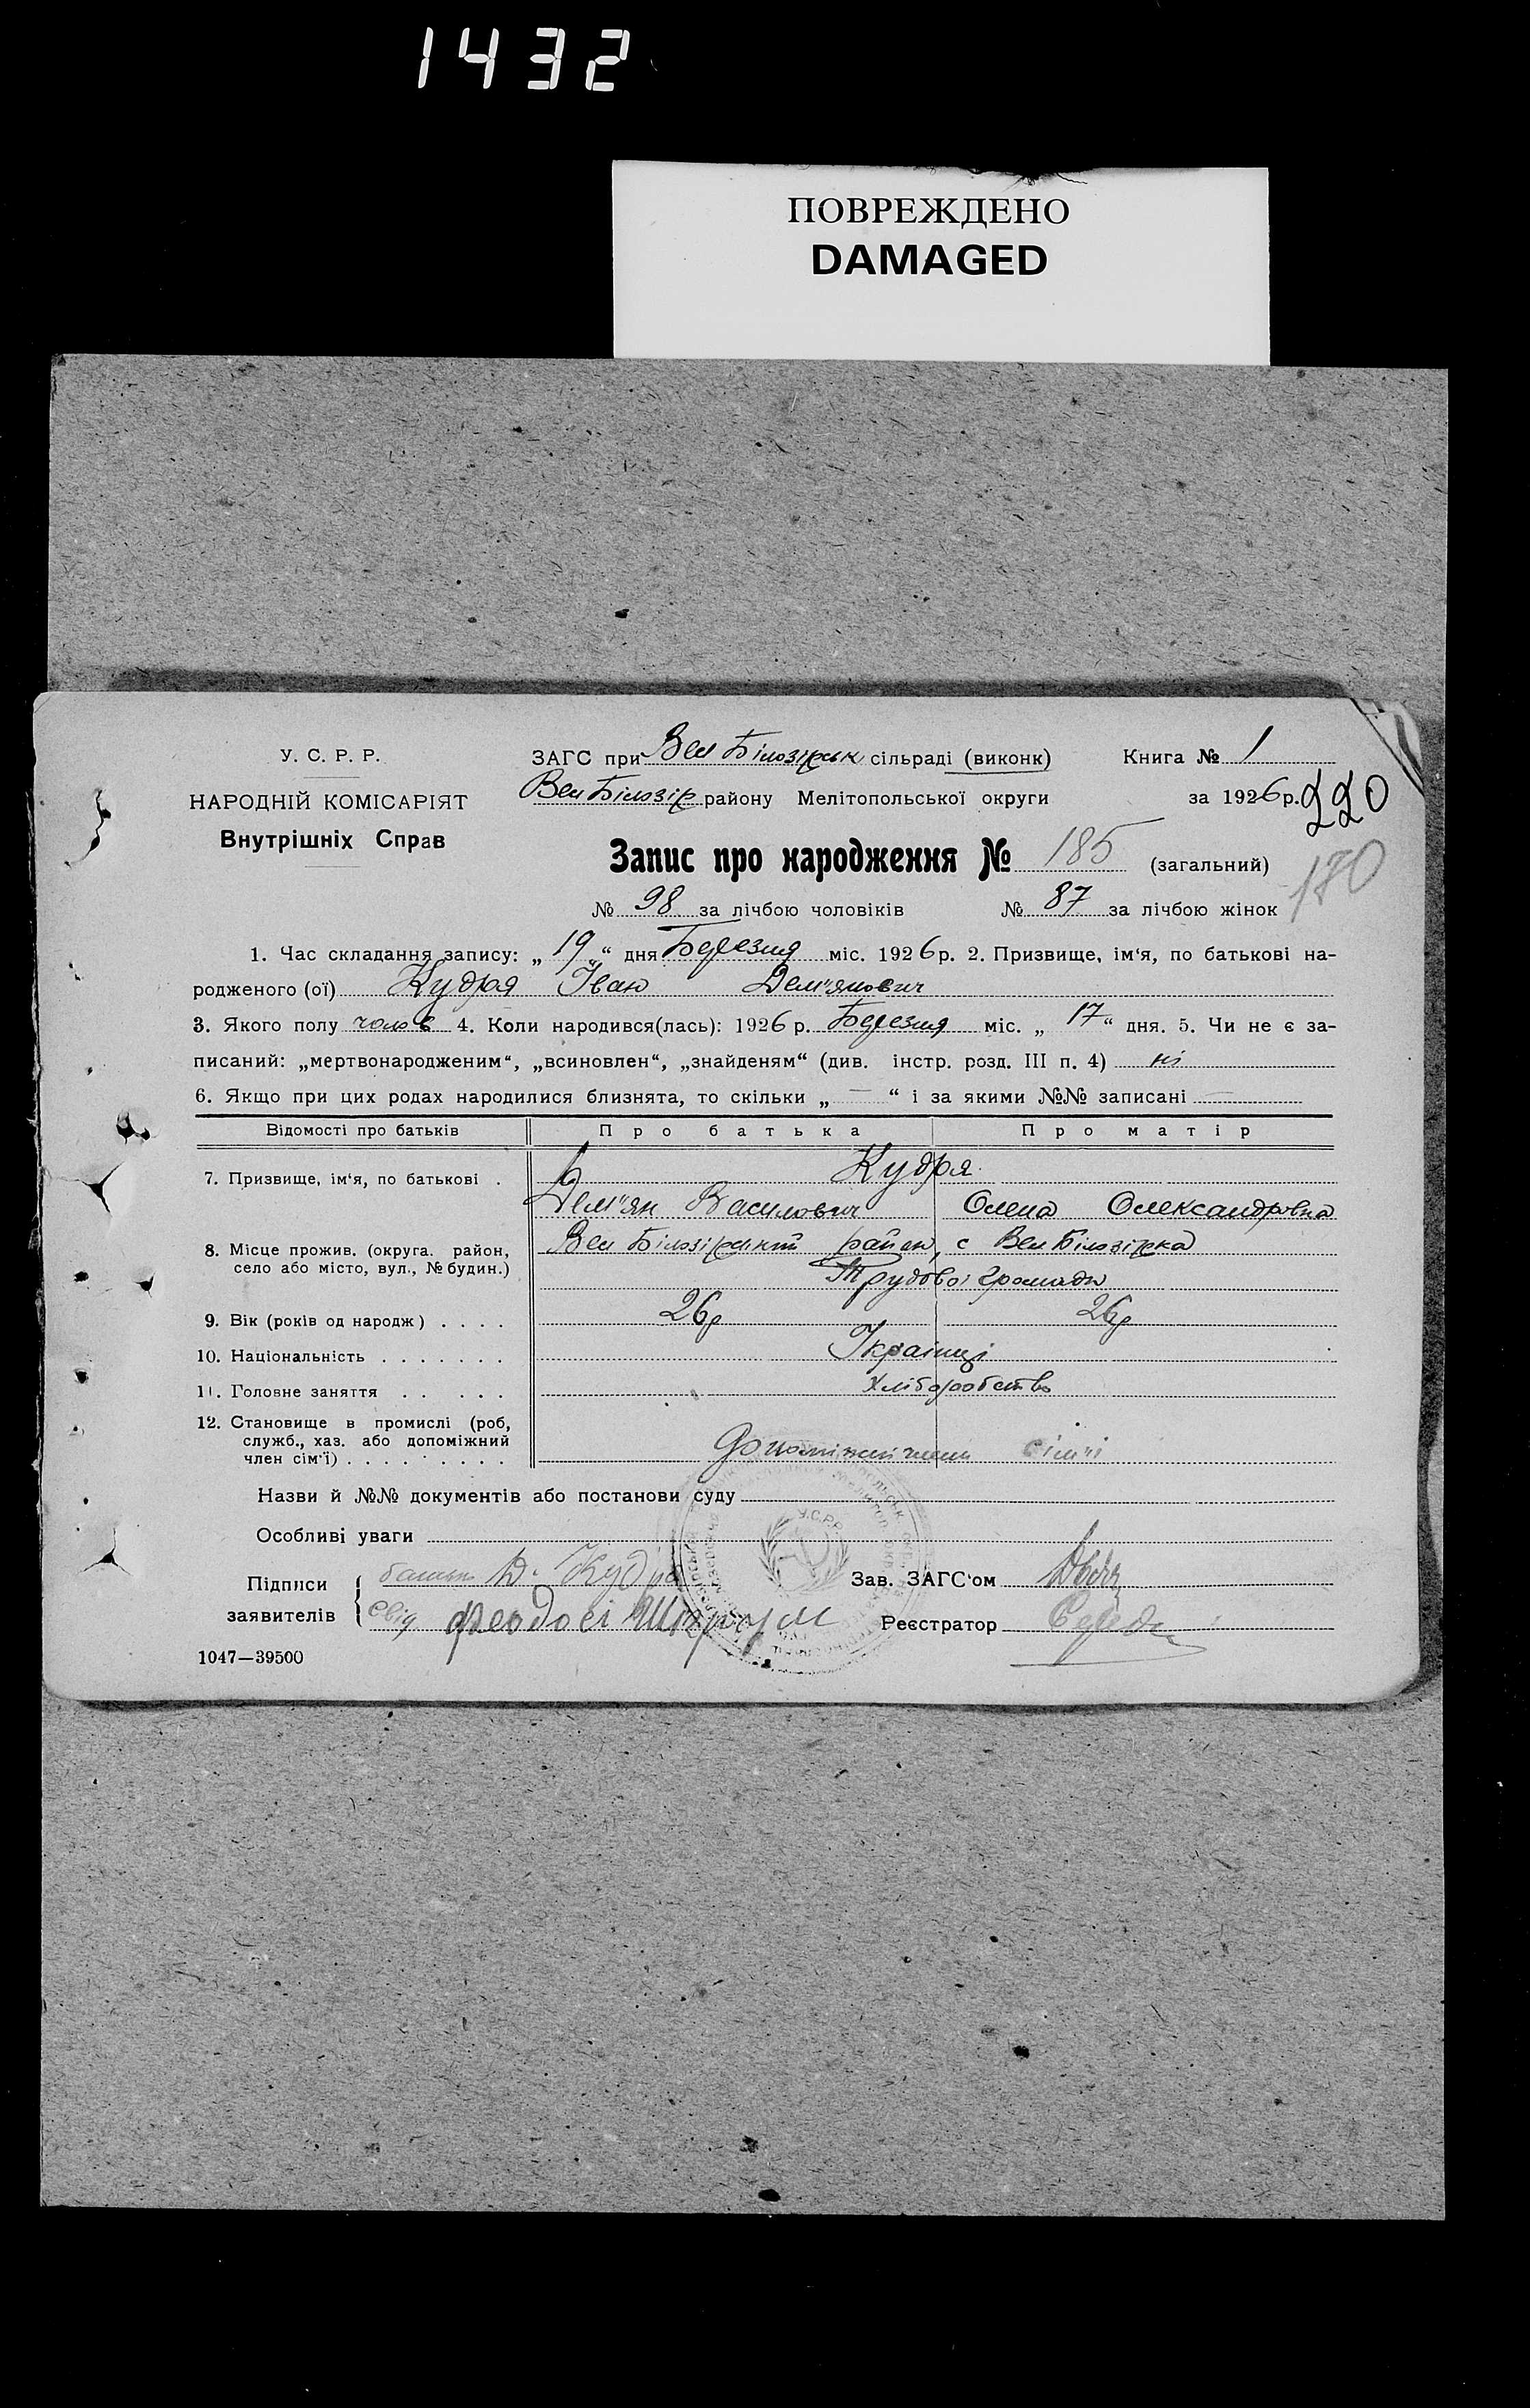 1432
ПОВРЕЖДЕНО
DAMAGED
У. С. Р. Р.
НАРОДНІЙ КОМІСАРІЯТ
Внутрішніх Справ
ЗАГС при Вел Білозірськ сільраді (виконк)
Книга № 1
Вел Білозір району Мелітопольської округи
за 1926 р. 220
Запис про народження № 185 (загальний)
180
№ 98 за лічбою чоловіків № 87 за лічбою жінок
1. Час складання запису: „ 19 “ дня Березня міс. 1926 р. 2. Призвище, ім‘я, по батькові на-
родженого (ої) Кудря Іван Дем'янович
3. Якого полу чолов 4. Коли народився(лась): 1926 р. Березня міс. „ 17 “ дня. 5. Чи не є за-
писаний: „мертвонародженим“, „всиновлен“, „знайденям“ (див. інстр. розд. III п. 4) ні
6. Якщо при цих родах народилися близнята, то скільки „ — “ і за якими №№ записані —
Відомості про батьків Про батька Про матір
7. Призвище, ім‘я, по батькові . Кудря
Дем'ян Василович Олена Олександровна
8. Місце прожив. (округа. район, село або місто, вул., № будин.) Вел Білозірський район, с Вел Білозірка
Трудової громади
9. Вік (років од народж) . . . . 26р 26р
10. Національність . . . . . . . Українці
11. Головне заняття . . . . . . Хліборобство
12. Становище в промислі (роб,
служб., хаз. або допоміжний
член сім‘ї) . . . . . . . . . Допоміжний член сім'ї
Назви й №№ документів або постанови суду
Особливі уваги
У.С.Р.Р.
Підписи
заявителів
батько Д. Кудря
Свід Феодосі
Зав. ЗАГС‘ом
Реєстратор Середа
1047—39500